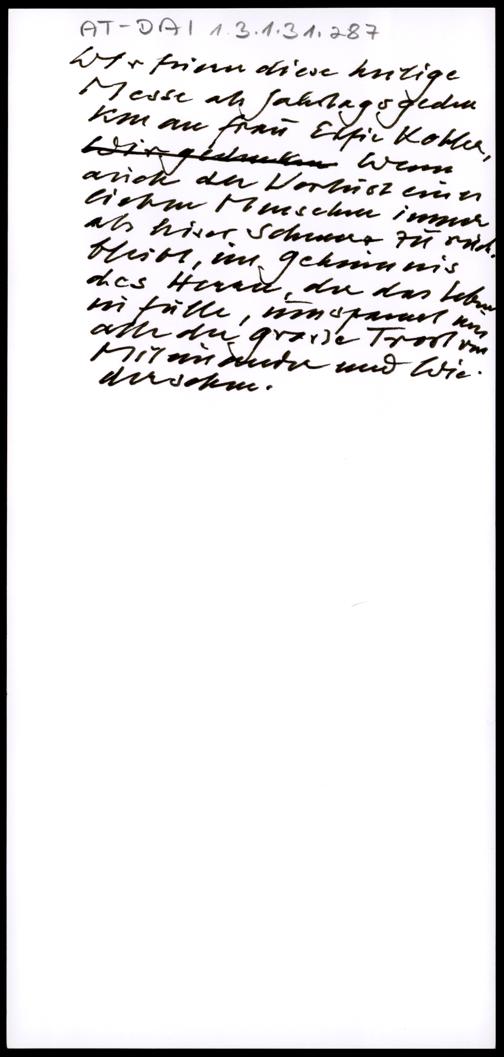 AT-DAI 1.3.1.31.287
Wir feiern diese heilige
Messe als Jahrtagsgeden
ken an Frau Elfie Kobler,
Wir gedenken Wenn
auch der Verlust eines
lieben Menschen immer
als leiser Schmerz zurück-
bleibt, im Geheimnis
des Herrn, der das Leben
in Fülle, umspannt uns
alle der große Trost von
Miteinander und Wie-
dersehen.